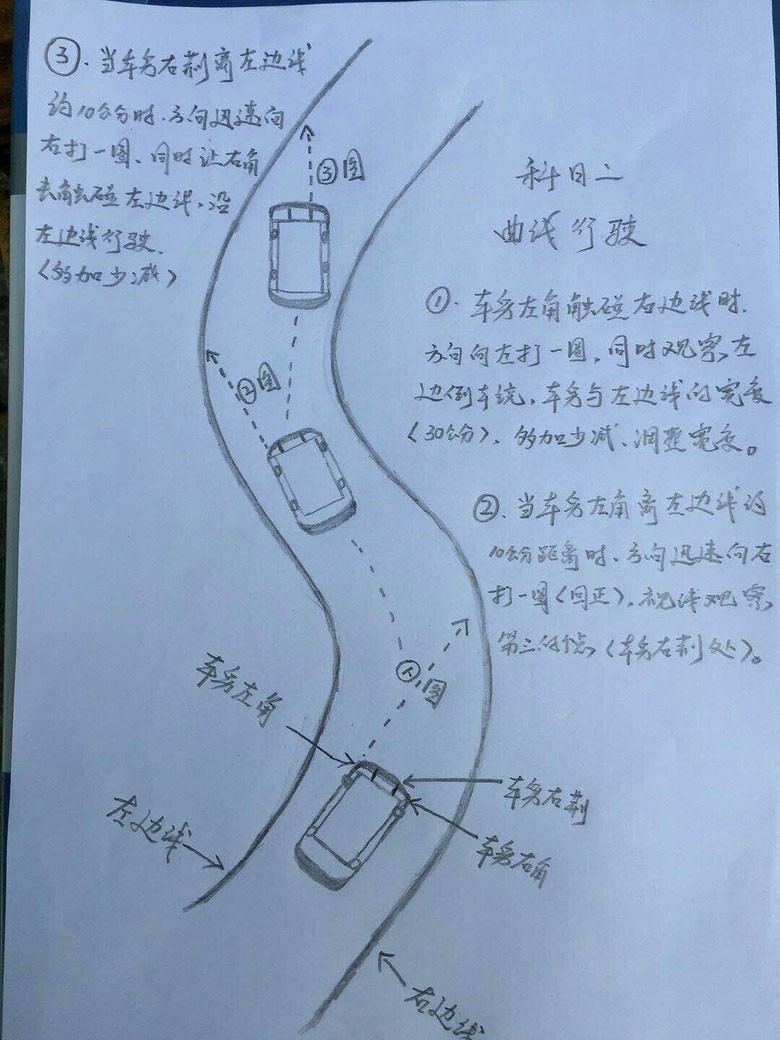 科目二
曲线行驶
①. 车头左角触碰右边线时.
方向向左打一圈, 同时观察左
边倒车镜, 车身与左边线的宽度
(30公分), 多加少减、调整宽度。
②. 当车头左角离左边线约
10公分距离时、方向迅速向右
打一圈(回正), 视线观察
第三的个点, (车头右荆处)。
③. 当车头右荆离左边线
约10公分时. 方向迅速向
右打一圈、同时让右角
去角触碰左边线, 沿
左边线行驶.
(多加少减)
③圈
②圈
①圈
车头左角
左边线
车头右荆
车头右角
右边线